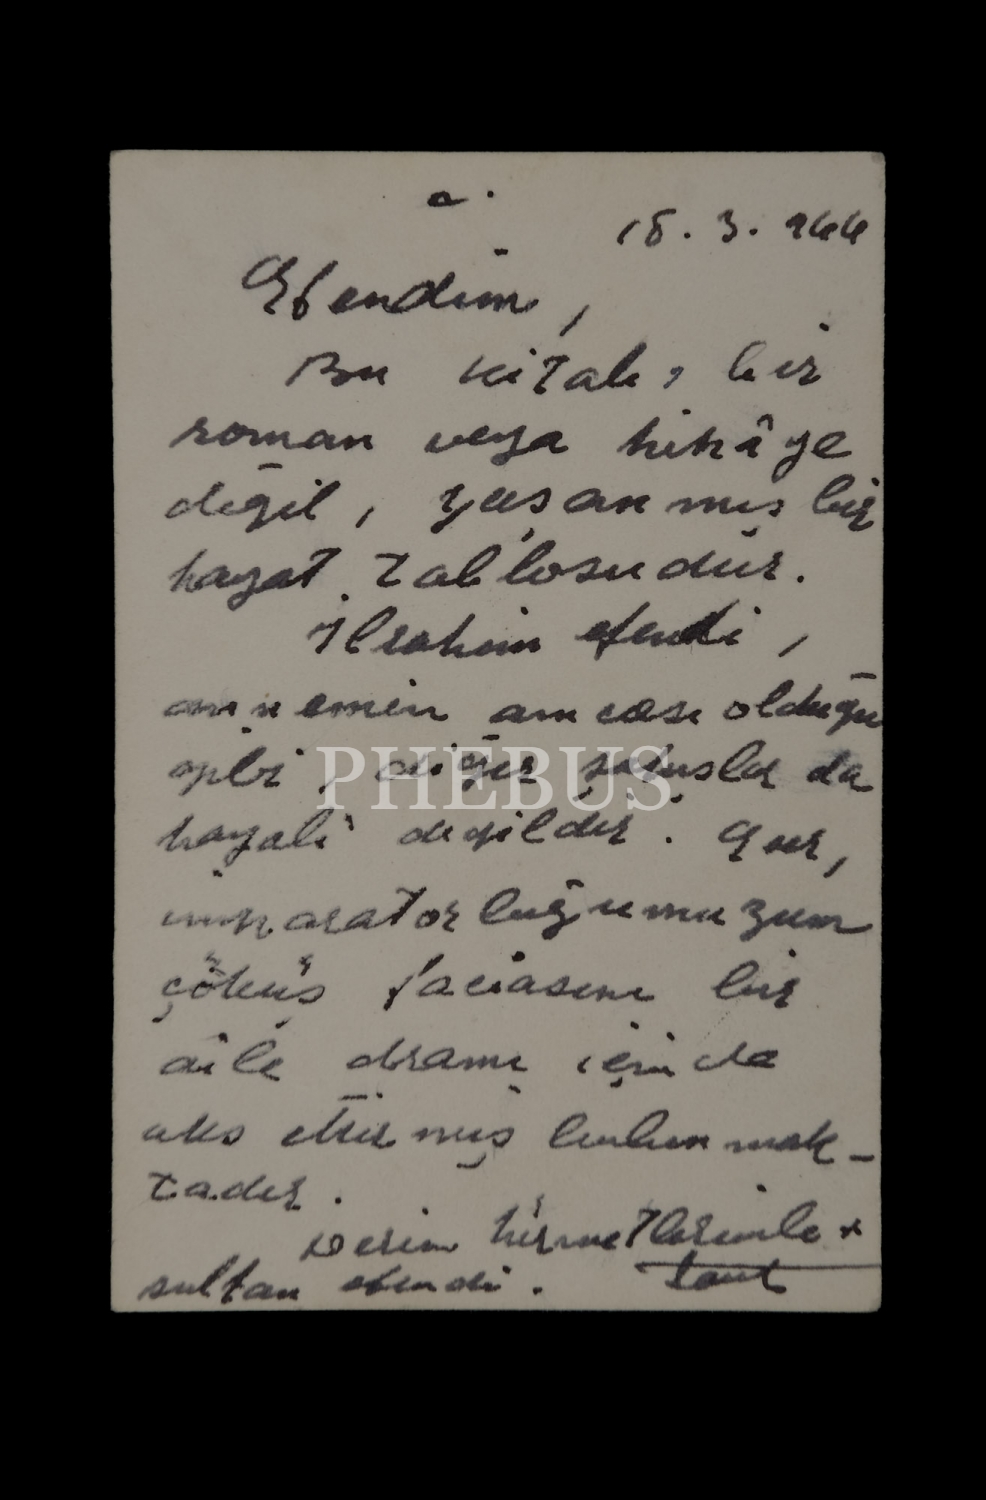 18.3.966
Efendim,
Bu kitab, bir
roman veya hikâye
değil, yaşanmış bir
hayat tablosudur.
İbrahim efendi,
annemin amcası olduğu
gibi, diğer şahıslar da
PHEBUS
hayali değildir. Eser,
imparatorluğumuzun
çöküş faciasını bir
aile dramı içinde
aks ettirmiş bulunmak-
tadır.
Derin hürmetlerimle
sultan efendi.